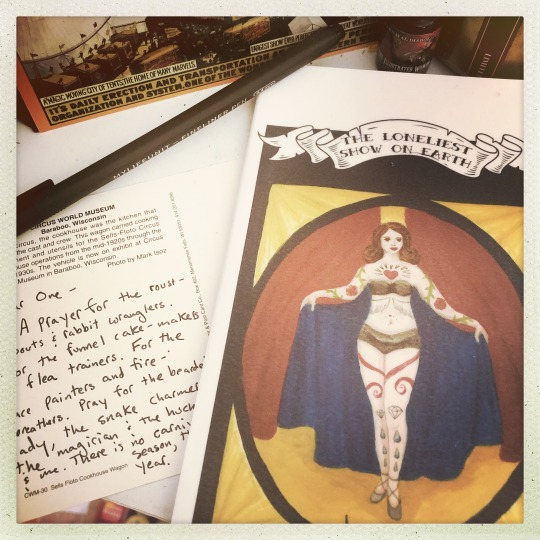 A MAGIC MOVING CITY OF TENTS, THE HOME OF MANY MARVELS
IT'S DAILY ERECTION AND TRANSPORTATION
ORGANIZATION AND SYSTEM, ONE OF THE WOR
LARGEST SHOW
ILLUSTRATED
THE LONELIEST
SHOW ON EARTH
CIRCUS WORLD MUSEUM
Baraboo, Wisconsin
circus, the cookhouse was the kitchen that
the cast and crew. This wagon carried cooking
ent and utensils for the Sells-Floto Circus
use operations from the mid-1920s through the
1930s. The vehicle is now on exhibit at Circus
Museum in Baraboo, Wisconsin.
Photo by Mark Isoz
r One -
A prayer for the roust-
bouts & rabbit wranglers.
or the funnel cake-makers
flea trainers. For the
ce painters and fire-
breathers. Pray for the bearded
ady, the snake charmer
the magician & the huck
s me. There is no carni
season, th
year.
CWM-30 Sells Floto Cookhouse Wagon